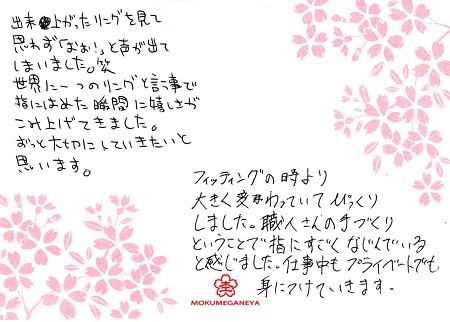 出来上がったリングを見て
思わず「おぉ！」と声が出て
しまいました。笑
世界に一つのリングと言う事で
指にはめた瞬間に嬉しさが
こみ上げてきました。
ずっと大切にしていきたいと
思います。
フィッティングの時より
大きく変わっていてびっくり
しました。職人さんの手づくり
ということで指にすごくなじんでいる
と感じました。仕事中もプライベートでも
身につけていきます。
MOKUMEGANEYA